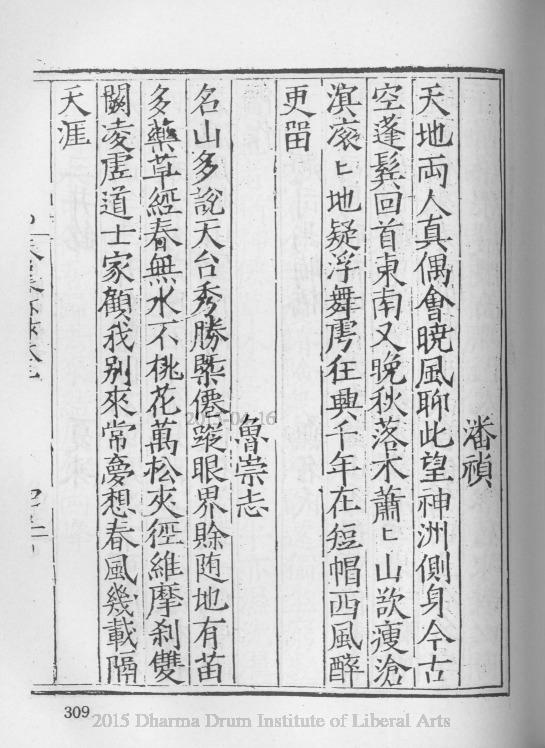 潘禎
天地兩人真偶會曉風聊此望神洲側身今古
空蓬鬂回首東南又晚秋落木蕭匕山欲瘦滄
溟滾匕地疑浮舞雩狂興千年在短帽西風醉
更畱
魯崇志
名山多說天台秀勝槩僊蹤眼界賖随地有苗
多藥草經春無水不桃花萬松夾徑維摩刹雙
闕凌虗道士家顧我别來常夢想春風幾載隔
天涯
309
2015 Dharma Drum Institute of Liberal Arts